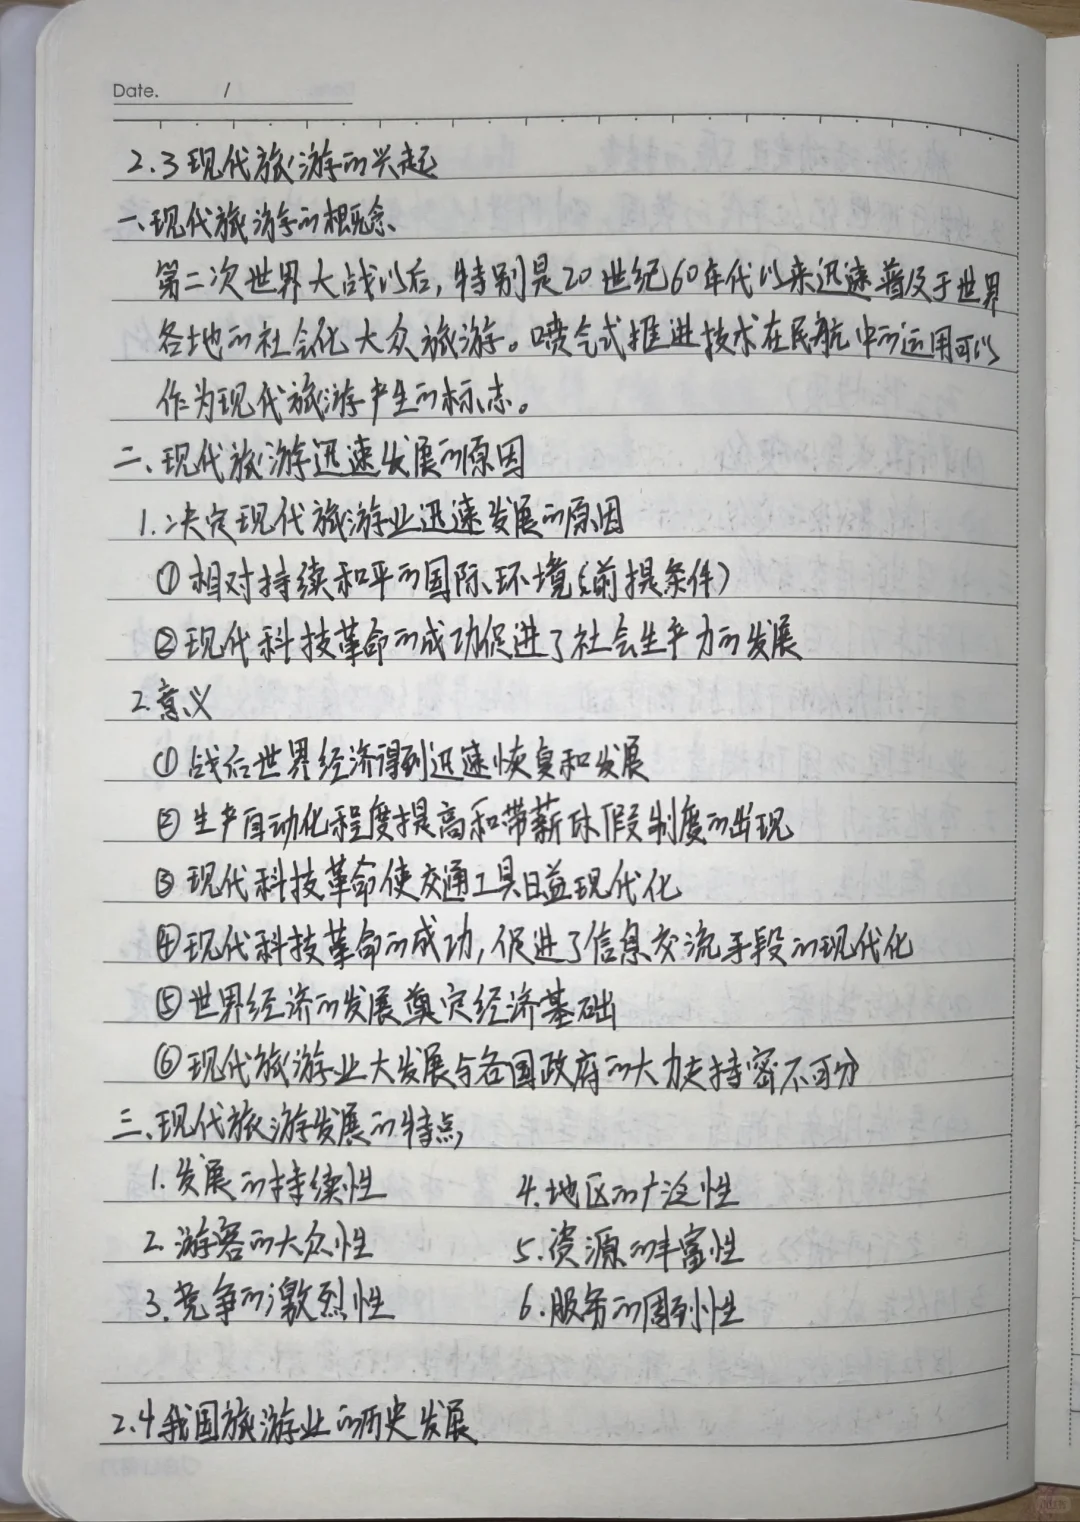 Date. /
2.3 现代旅游的兴起
一、现代旅游的概念
第二次世界大战以后,特别是20世纪60年代以来迅速普及于世界
各地的社会化大众旅游。喷气式推进技术在民航中的运用可以
作为现代旅游产生的标志。
二、现代旅游迅速发展的原因
1.决定现代旅游业迅速发展的原因
①相对持续和平的国际环境(前提条件)
②现代科技革命的成功促进了社会生产力的发展
2.意义
①战后世界经济得到迅速恢复和发展
②生产自动化程度提高和带薪休假制度的出现
③现代科技革命使交通工具日益现代化
④现代科技革命的成功,促进了信息交流手段的现代化
⑤世界经济的发展奠定经济基础
⑥现代旅游业大发展与各国政府的大力支持密不可分
三、现代旅游发展的特点
1.发展的持续性 4.地区的广泛性
2.游客的大众性 5.资源的丰富性
3.竞争的激烈性 6.服务的周到性
2.4我国旅游业的历史发展